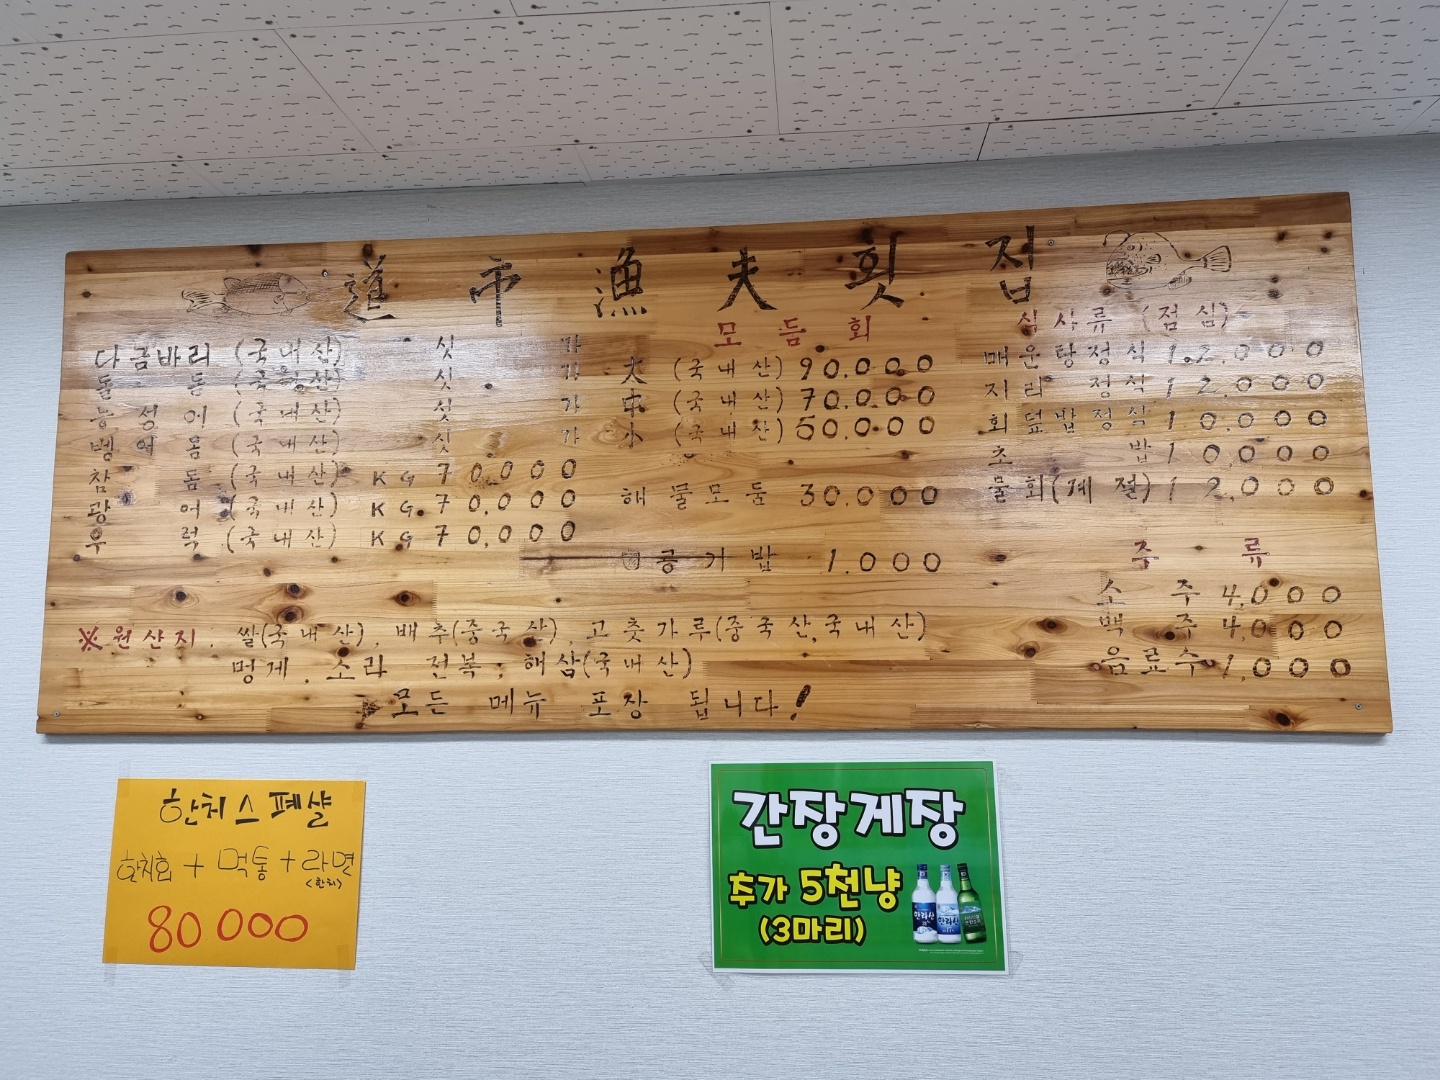 道市漁夫횟점
다금바리 (국내산) 싯가
돌돔 (국내산) 싯가
능성어 (국내산) 싯가
벵에돔 (국내산) 싯가
참돔 (국내산) KG 70,000
광어 (국내산) KG 70,000
우럭 (국내산) KG 70,000
모듬회
大 (국내산) 90,000
中 (국내산) 70,000
小 (국내산) 50,000
해물모듬 30,000
공기밥 1.000
식사류 (점심)
매운탕정식 12,000
지리정식 12,000
회덮밥정식 10,000
초밥 10,000
물회(계절) 12,000
주류
소주 4,000
맥주 4,000
음료수 1,000
※원산지. 쌀(국내산), 배추(중국산), 고춧가루(중국산,국내산)
멍게, 소라 전복, 해삼(국내산)
모든 메뉴 포장 됩니다!
한치스페샬
한치회 + 먹통 + 라면
<한치>
80000
간장게장
추가 5천냥
(3마리)
한라산
한라산